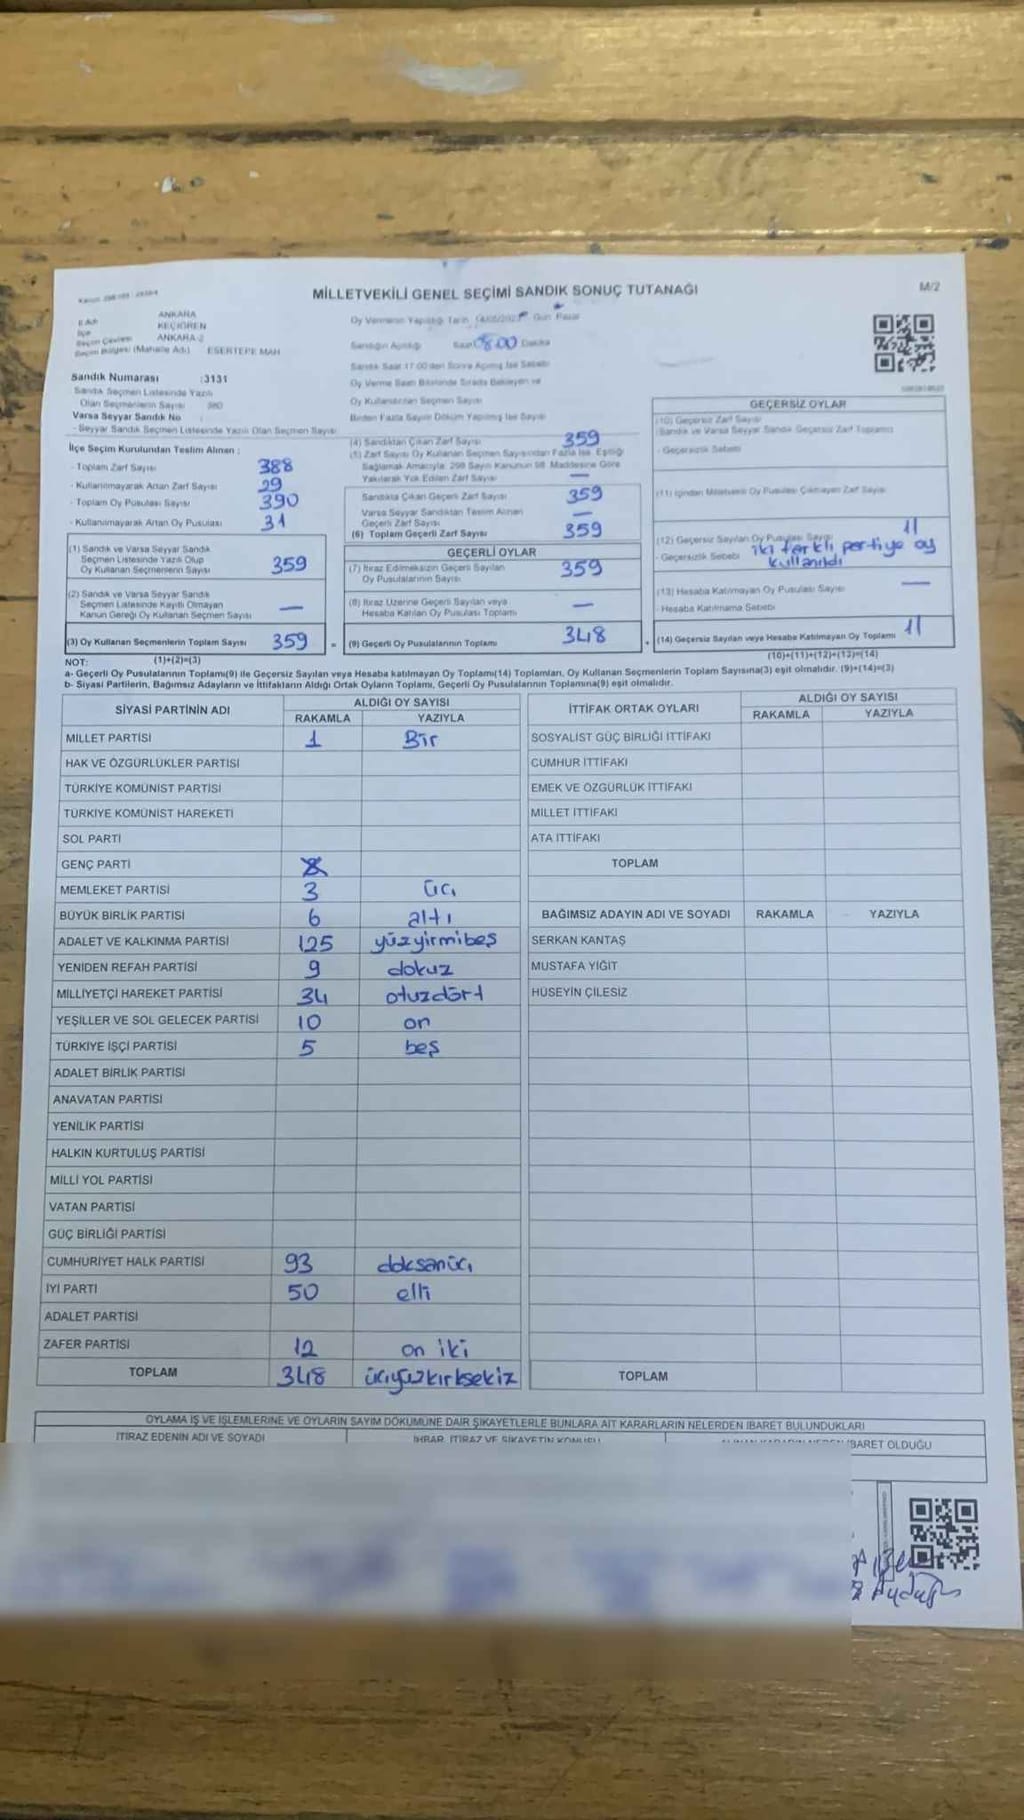 MİLLETVEKİLİ GENEL SEÇİMİ SANDIK SONUÇ TUTANAĞI
M/2
İl Adı ANKARA
İlçe KEÇİÖREN
Seçim Çevresi ANKARA-2
Seçim Bölgesi (Mahalle Adı) ESERTEPE MAH
Oy Vermenin Yapıldığı Tarih 14/05/2023 Gün Pazar
Sandığın Açıldığı Saat 18:00 Dakika
Sandık Saat 17:00'den Sonra Açılmış İse Sebebi
Oy Verme Saati Bitiminde Sırada Bekleyen ve
Oy Kullandırılan Seçmen Sayısı
Birden Fazla Sayım Döküm Yapılmış İse Sayısı
Sandık Numarası :3131
Sandık Seçmen Listesinde Yazılı
Olan Seçmenlerin Sayısı 380
Varsa Seyyar Sandık No
- Seyyar Sandık Seçmen Listesinde Yazılı Olan Seçmen Sayısı
İlçe Seçim Kurulundan Teslim Alınan :
- Toplam Zarf Sayısı 388
- Kullanılmayarak Artan Zarf Sayısı 29
- Toplam Oy Pusulası Sayısı 390
- Kullanılmayarak Artan Oy Pusulası 31
(1) Sandık ve Varsa Seyyar Sandık
Seçmen Listesinde Yazılı Olup
Oy Kullanan Seçmenlerin Sayısı 359
(2) Sandık ve Varsa Seyyar Sandık
Seçmen Listesinde Kayıtlı Olmayan
Kanun Gereği Oy Kullanan Seçmen Sayısı —
(3) Oy Kullanan Seçmenlerin Toplam Sayısı 359 =
(1)+(2)=(3)
(4) Sandıktan Çıkan Zarf Sayısı 359
(5) Zarf Sayısı Oy Kullanan Seçmen Sayısından Fazla İse, Eşitliği
Sağlamak Amacıyla, 298 Sayılı Kanunun 98. Maddesine Göre
Yakılarak Yok Edilen Zarf Sayısı —
Sandıkta Çıkan Geçerli Zarf Sayısı 359
Varsa Seyyar Sandıktan Teslim Alınan
Geçerli Zarf Sayısı —
(6) Toplam Geçerli Zarf Sayısı 359
GEÇERLİ OYLAR
(7) İtiraz Edilmeksizin Geçerli Sayılan
Oy Pusulalarının Sayısı 359
(8) İtiraz Üzerine Geçerli Sayılan veya
Hesaba Katılan Oy Pusulası Toplamı —
(9) Geçerli Oy Pusulalarının Toplamı 348 +
GEÇERSİZ OYLAR
(10) Geçersiz Zarf Sayısı
(Sandık ve Varsa Seyyar Sandık Geçersiz Zarf Toplamı)
- Geçersizlik Sebebi
(11) İçinden Milletvekili Oy Pusulası Çıkmayan Zarf Sayısı
(12) Geçersiz Sayılan Oy Pusulası Sayısı 11
- Geçersizlik Sebebi iki farklı partiye oy
kullanıldı
(13) Hesaba Katılmayan Oy Pusulası Sayısı —
- Hesaba Katılmama Sebebi
(14) Geçersiz Sayılan veya Hesaba Katılmayan Oy Toplamı 11
(10)+(11)+(12)+(13)=(14)
NOT:
a- Geçerli Oy Pusulalarının Toplamı(9) ile Geçersiz Sayılan veya Hesaba katılmayan Oy Toplamı(14) Toplamları, Oy Kullanan Seçmenlerin Toplam Sayısına(3) eşit olmalıdır. (9)+(14)=(3)
b- Siyasi Partilerin, Bağımsız Adayların ve İttifakların Aldığı Ortak Oyların Toplamı, Geçerli Oy Pusulalarının Toplamına(9) eşit olmalıdır.
SİYASİ PARTİNİN ADI
ALDIĞI OY SAYISI
RAKAMLA YAZIYLA
MİLLET PARTİSİ 1 Bir
HAK VE ÖZGÜRLÜKLER PARTİSİ
TÜRKİYE KOMÜNİST PARTİSİ
TÜRKİYE KOMÜNİST HAREKETİ
SOL PARTİ
GENÇ PARTİ
MEMLEKET PARTİSİ 3 üç
BÜYÜK BİRLİK PARTİSİ 6 altı
ADALET VE KALKINMA PARTİSİ 125 yüzyirmibeş
YENİDEN REFAH PARTİSİ 9 dokuz
MİLLİYETÇİ HAREKET PARTİSİ 34 otuzdört
YEŞİLLER VE SOL GELECEK PARTİSİ 10 on
TÜRKİYE İŞÇİ PARTİSİ 5 beş
ADALET BİRLİK PARTİSİ
ANAVATAN PARTİSİ
YENİLİK PARTİSİ
HALKIN KURTULUŞ PARTİSİ
MİLLİ YOL PARTİSİ
VATAN PARTİSİ
GÜÇ BİRLİĞİ PARTİSİ
CUMHURİYET HALK PARTİSİ 93 doksanüç
İYİ PARTİ 50 elli
ADALET PARTİSİ
ZAFER PARTİSİ 12 on iki
TOPLAM 348 üçyüzkırksekiz
İTTİFAK ORTAK OYLARI
ALDIĞI OY SAYISI
RAKAMLA YAZIYLA
SOSYALİST GÜÇ BİRLİĞİ İTTİFAKI
CUMHUR İTTİFAKI
EMEK VE ÖZGÜRLÜK İTTİFAKI
MİLLET İTTİFAKI
ATA İTTİFAKI
TOPLAM
BAĞIMSIZ ADAYIN ADI VE SOYADI RAKAMLA YAZIYLA
SERKAN KANTAŞ
MUSTAFA YİĞİT
HÜSEYİN ÇİLESİZ
TOPLAM
OYLAMA İŞ VE İŞLEMLERİNE VE OYLARIN SAYIM DÖKÜMÜNE DAİR ŞİKAYETLERLE BUNLARA AİT KARARLARIN NELERDEN İBARET BULUNDUKLARI
İTİRAZ EDENİN ADI VE SOYADI İHBAR, İTİRAZ VE ŞİKAYETİN KONUSU İBARET OLDUĞU